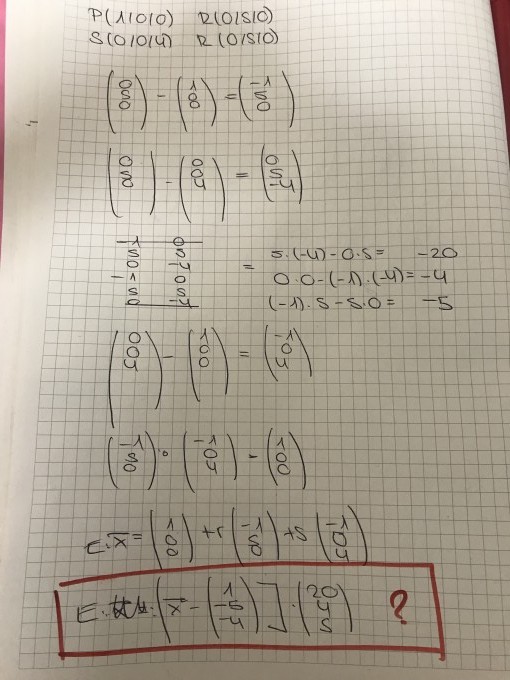 P(1|0|0) R(0|5|0)
S(0|0|4) R(0|5|0)
(0 5 0) - (1 0 0) = (-1 5 0)
(0 5 0) - (0 0 4) = (0 5 -4)
-1 0
5 5
0 -4
-1 0
5 5
0 -4
= 5·(-4) - 0·5 = -20
0·0-(-1)·(-4) = -4
(-1)·5-5·0 = -5
(0 0 4) - (1 0 0) = (-1 0 4)
(-1 5 0) ∘ (-1 0 4) - (1 0 0)
E: x = (1 0 0) + r (-1 5 0) + s (-1 0 4)
E: (x - (1 -5 -4)]·(20 4 5) ?